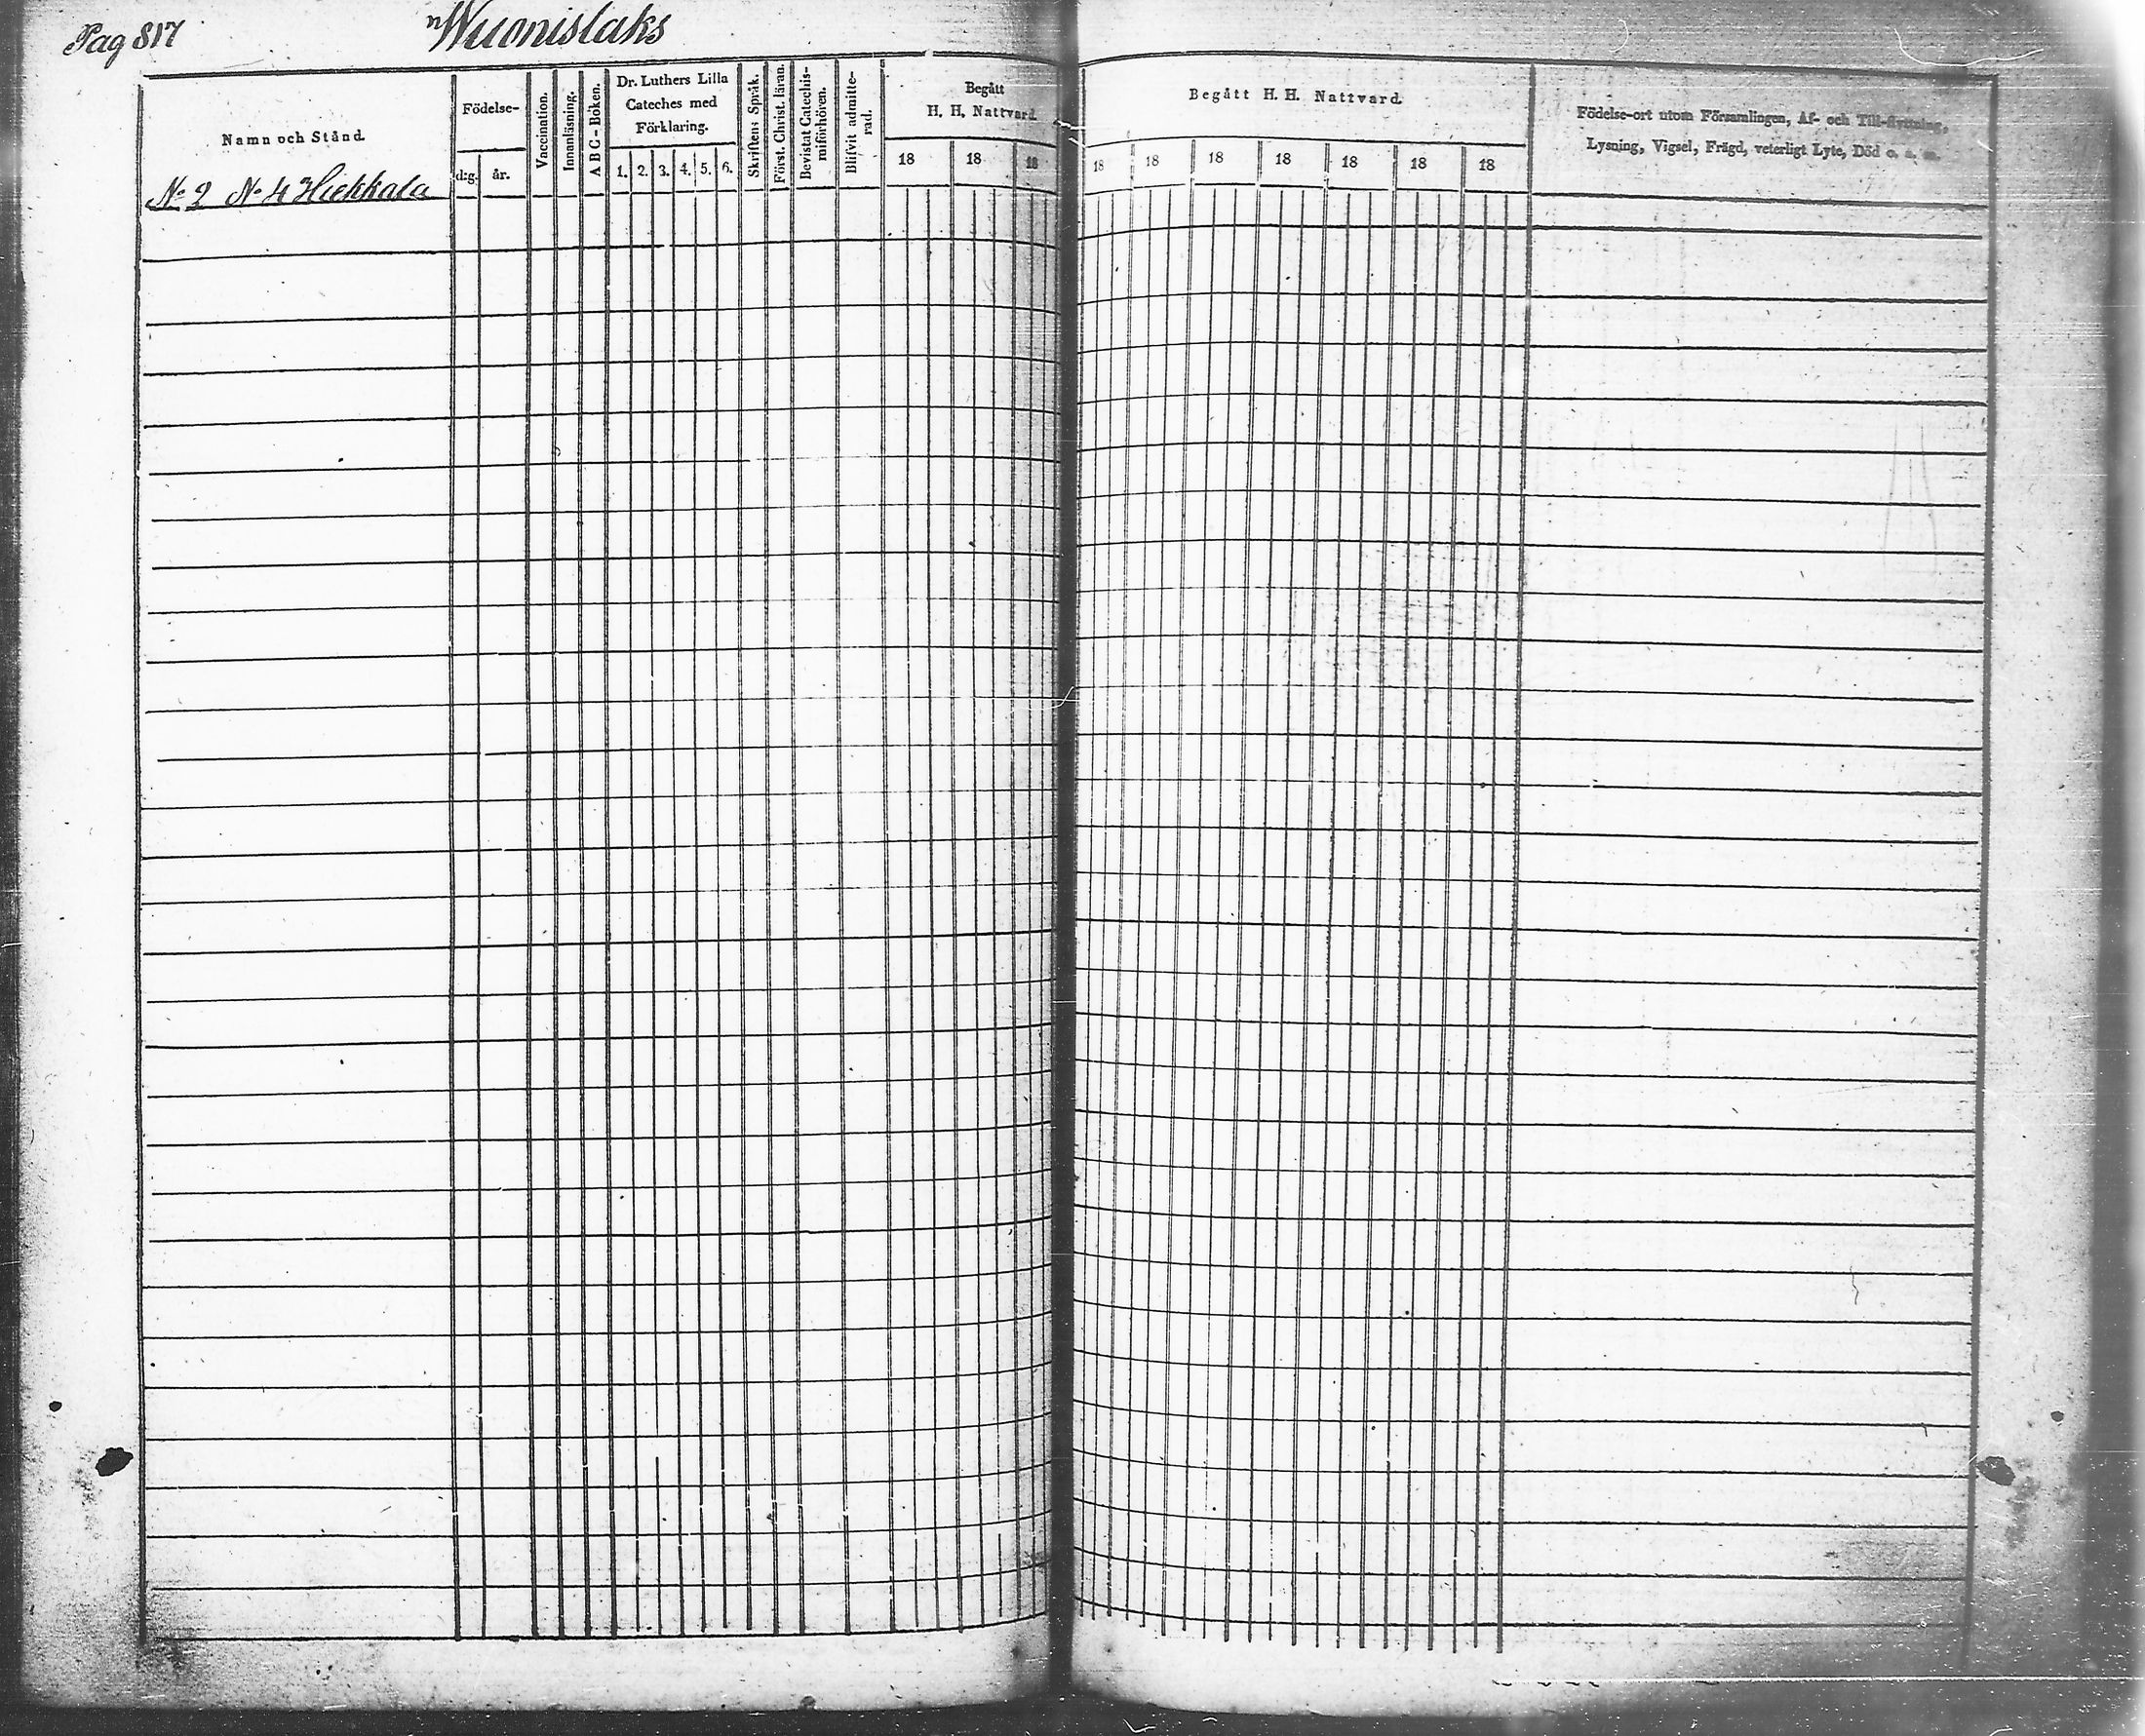 Pag 817
Wuonislaks
Namn och Stånd.
Födelse-
dag.
år.
Vaccination.
Innanläsning.
ABC-Boken.
Dr. Luthers Lilla
Cateches med
Förklaring.
1. 2. 3. 4. 5. 6.
Skriftens Språk.
Först. Christ. läran.
Bevistat Catechis-
miförhören.
Blifvit admitte-
rad.
Begått
H. H. Nattvard.
18 18 18
Begått H. H. Nattvard.
18 18 18 18 18 18 18
Födelse-ort utom Församlingen, Af- och Till-flyttning,
Lysning, Vigsel, Frägd, veterligt Lyte, Död o. a. m.
No 2 No 4 Hiekkala